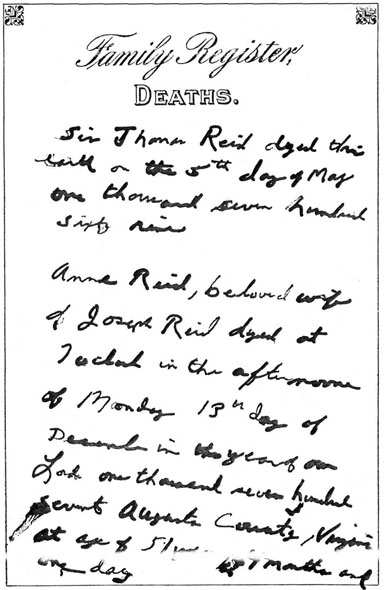 Family Register,
DEATHS.
Sir Thomas Reid dyed this
earth on the 5th day of May
one thousand seven hundred
sixty nine
Anne Reid, beloved wife
of Joseph Reid dyed at
in the afternoone
of Monday 13th day of
in the year of our
Lord one thousand seven hundred
Augusta County, Virginia
at age of 51 months and
one day